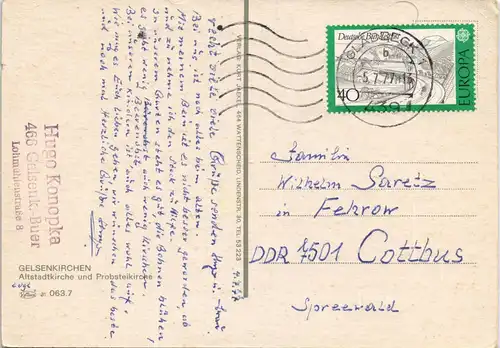 Recht viele liebe Grüße senden Hugo u.
Bei uns ist noch alles beim alten.
Mit meinem Bein ist es nicht besser geworden, ab
und zu nehme ich den Stock zu Hilfe.
In unserem Garten steht es gut die Bohnen blühen,
es gibt wenig Beerenobst auch wenig Kirschen.
Bei unseren Kindern ist auch alles wohl auf.
Wie mag es Euch Lieben gehen, wir wünschen das beste
und noch mal Herzliche Grüße
4.7.77
VERLAG KURT 464 WATTENSCHEID, LINDENSTR. 30, TEL. 53 223
Hugo Konopka
466 Gelsenk.-Buer
Lohmühlenstraße 8
GELSENKIRCHEN
Altstadtkirche und Probsteikirche
063.7
Deutsche Bundespost
40
EUROPA
-5.7.77
Familie
Wilhelm Saretz
in Fehrow
DDR 7501 Cottbus
Spreewald